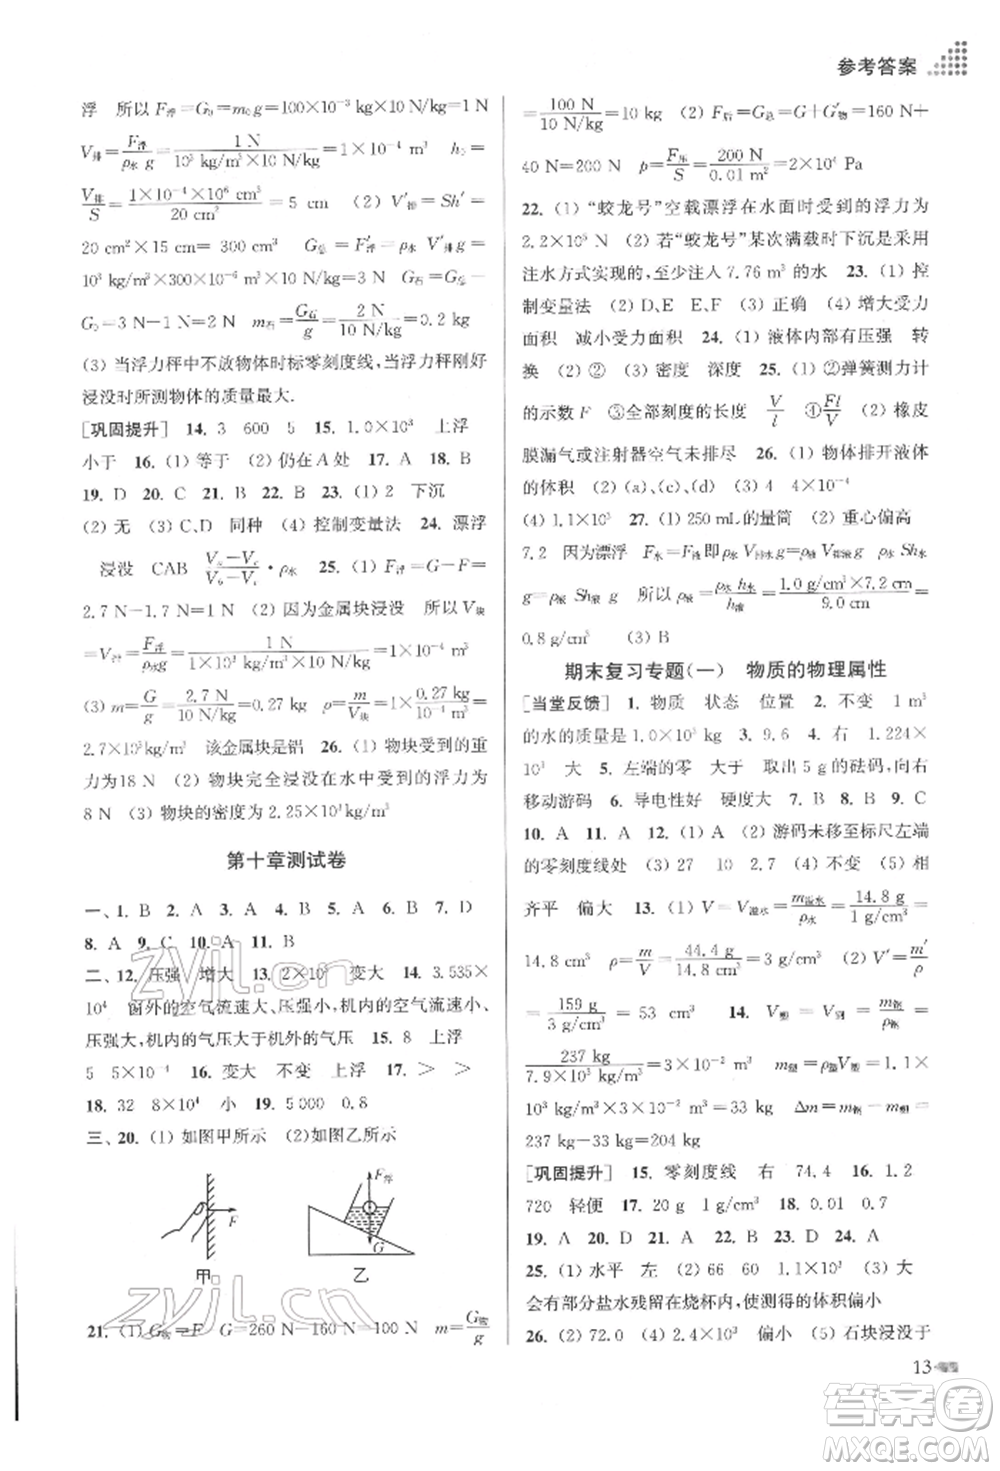 参考答案
浮 所以 F浮=G₀=m₀g=100×10⁻³ kg×10 N/kg=1 N
V排=F浮/ρ水g=1 N/10³ kg/m³×10 N/kg=1×10⁻⁴ m³ h₀=
V排/S=1×10⁻⁴×10⁶ cm³/20 cm²=5 cm (2) V′排=Sh′=
20 cm²×15 cm=300 cm³ G总=F′浮=ρ水V′排g=
10³ kg/m³×300×10⁻⁶ m³×10 N/kg=3 N G石=G总-
G₀=3 N-1 N=2 N m石=G石/g=2 N/10 N/kg=0.2 kg
(3) 当浮力秤中不放物体时标零刻度线,当浮力秤刚好
浸没时所测物体的质量最大.
[巩固提升] 14. 3 600 5 15. 1.0×10³ 上浮
小于 16. (1) 等于 (2) 仍在 A 处 17. A 18. B
19. D 20. C 21. B 22. B 23. (1) 2 下沉
(2) 无 (3) C、D 同种 (4) 控制变量法 24. 漂浮
浸没 CAB ·ρ水 25. (1) F浮=G-F=
2.7 N-1.7 N=1 N (2) 因为金属块浸没 所以 V块
=V排=F浮/ρ水g=1 N/1×10³ kg/m³×10 N/kg=1×10⁻⁴ m³
(3) m=G/g=2.7 N/10 N/kg=0.27 kg ρ=m/V块=0.27 kg/1×10⁻⁴ m³=
2.7×10³ kg/m³ 该金属块是铝 26. (1) 物块受到的重
力为18 N (2) 物块完全浸没在水中受到的浮力为
8 N (3) 物块的密度为 2.25×10³ kg/m³
第十章测试卷
一、1. B 2. A 3. A 4. A 5. B 6. B 7. D
8. A 9. C 10. A 11. B
二、12. 压强 增大 13. 2×10⁵ 变大 14. 3.535×
10⁴ 窗外的空气流速大、压强小,机内的空气流速小、
压强大,机内的气压大于机外的气压 15. 8 上浮
5 5×10⁻⁴ 16. 变大 不变 上浮 17. > >
18. 32 8×10⁴ 小 19. 5 000 0.8
三、20. (1) 如图甲所示 (2)如图乙所示
F F浮 G
甲 乙
21. (1) G物=F G=260 N-160 N=100 N m=G物/g
=100 N/10 N/kg=10 kg (2) F后=G总=G+G′物=160 N+
40 N=200 N p=F压/S=200 N/0.01 m²=2×10⁴ Pa
22. (1) “蛟龙号”空载漂浮在水面时受到的浮力为
2.2×10⁵ N (2) 若“蛟龙号”某次满载时下沉是采用
注水方式实现的,至少注入 7.76 m³ 的水 23. (1) 控
制变量法 (2) D、E E、F (3) 正确 (4) 增大受力
面积 减小受力面积 24. (1) 液体内部有压强 转
换 (2) ② (3) 密度 深度 25. (1) ②弹簧测力计
的示数 F ③全部刻度的长度 V/l ④Fl/V (2) 橡皮
膜漏气或注射器空气未排尽 26. (1) 物体排开液体
的体积 (2) (a)、(c)、(d) (3) 4
(4) 1.1×10³ 27. (1) 250 mL的量筒 (2) 重心偏高
7.2 因为漂浮 F水=F液 即 ρ水V排水g=ρ液V排液g ρ水Sh水
g=ρ液Sh液g ρ液=ρ水h水/h液=1.0 g/cm³×7.2 cm/9.0 cm=
0.8 g/cm³ (3) B
期末复习专题(一) 物质的物理属性
[当堂反馈] 1. 物质 状态 位置 2. 不变 1 m³
的水的质量是 1.0×10³ kg 3. 9.6 4. 右 1.224×
10³ 大 5. 左端的零 大于 取出 5 g 的砝码,向右
移动游码 6. 导电性好 硬度大 7. B 8. B 9. C
10. A 11. A 12. (1) A (2) 游码未移至标尺左端
的零刻度线处 (3) 27 10 2.7 (4) 不变 (5) 相
齐平 偏大 13. (1) V=V溢水=m溢水/ρ水=14.8 g/1 g/cm³=
14.8 cm³ ρ=m/V=44.4 g/14.8 cm³=3 g/cm³ (2) V′=m′/ρ
=159 g/3 g/cm³=53 cm³ 14. V塑=V钢=m钢/ρ钢=
237 kg/7.9×10³ kg/m³=3×10⁻² m³ m塑=ρ塑V塑=1.1×
10³ kg/m³×3×10⁻² m³=33 kg Δm=m钢-m塑=
237 kg-33 kg=204 kg
[巩固提升] 15. 零刻度线 右 74.4 16. 1.2
720 轻便 17. 20 g 10 g 18. 0.01 0.7
19. D 20. A 21. A 22. B 23. D 24. A
25. (1) 水平 左 (2) 66 60 1.1×10³ (3) 大
会有部分盐水残留在烧杯内,使测得的体积偏小
26. (2) 72.0 (4) 2.4×10³ 偏小 (5) 石块浸没于
13
zyjl.cn
zyjl.cn
答案圈
MXQE.COM